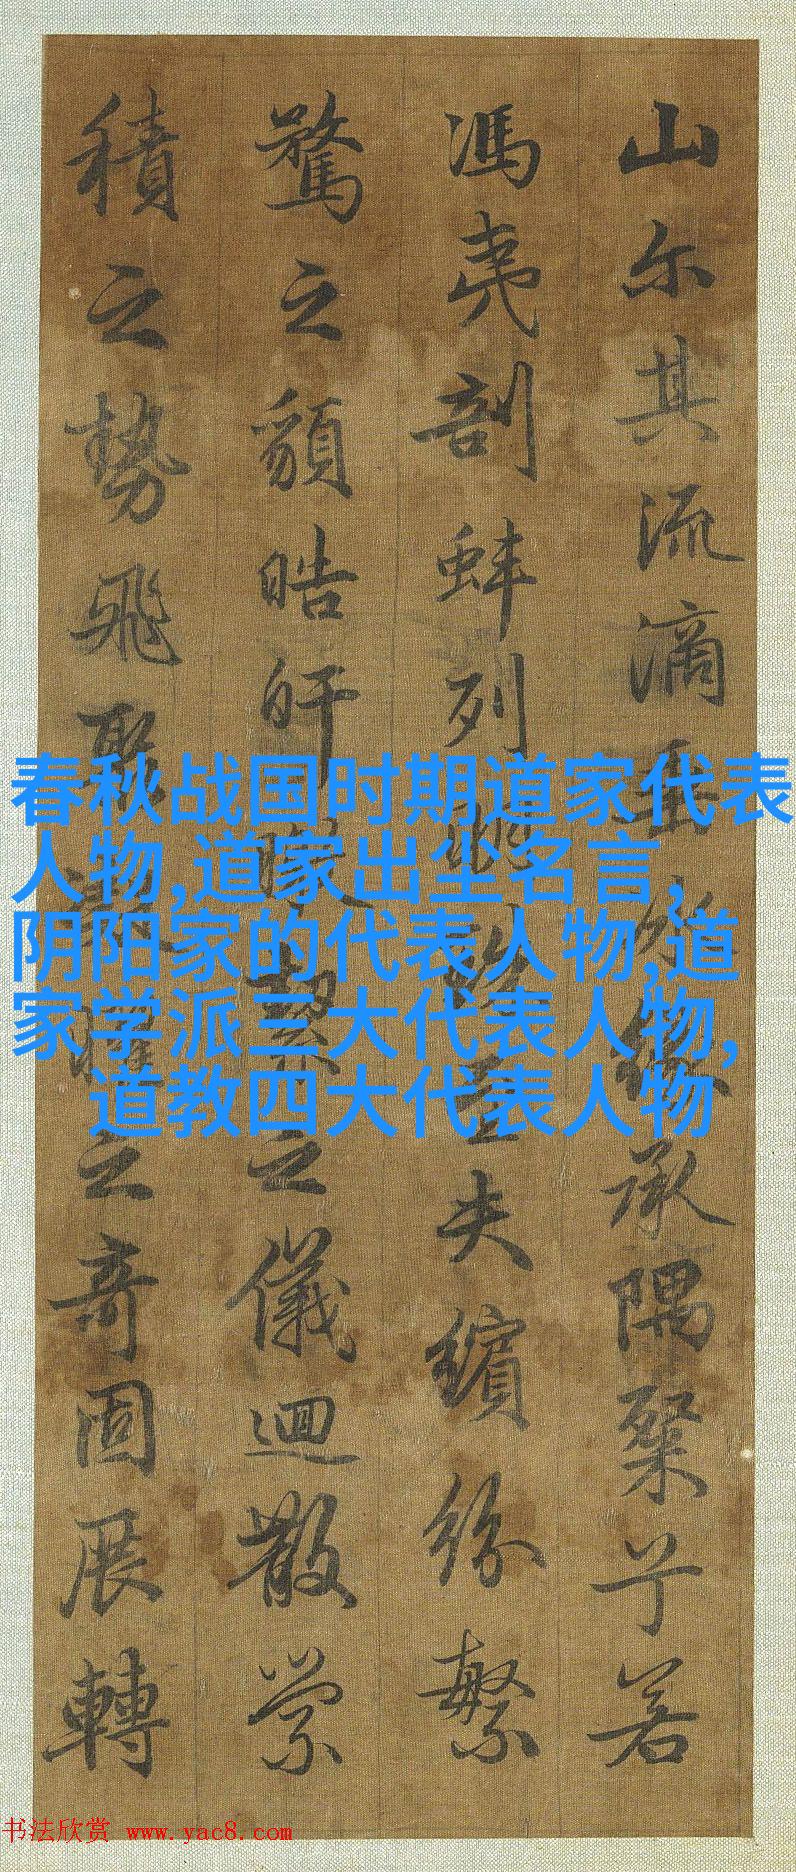 山尔其流滴垂冰緣承隅粲兮若
馮夷剖蚌列明珠至夫繽紛繁
騖之䫉皓皔曒潔之儀迴散縈
積之勢飛聚凝曜之奇固展轉
春秋战国时期道家代表
人物,道家出尘名言,
阴阳家的代表人物,道
家学派三大代表人物,
道教四大代表人物
书法欣赏 www.yac8.com